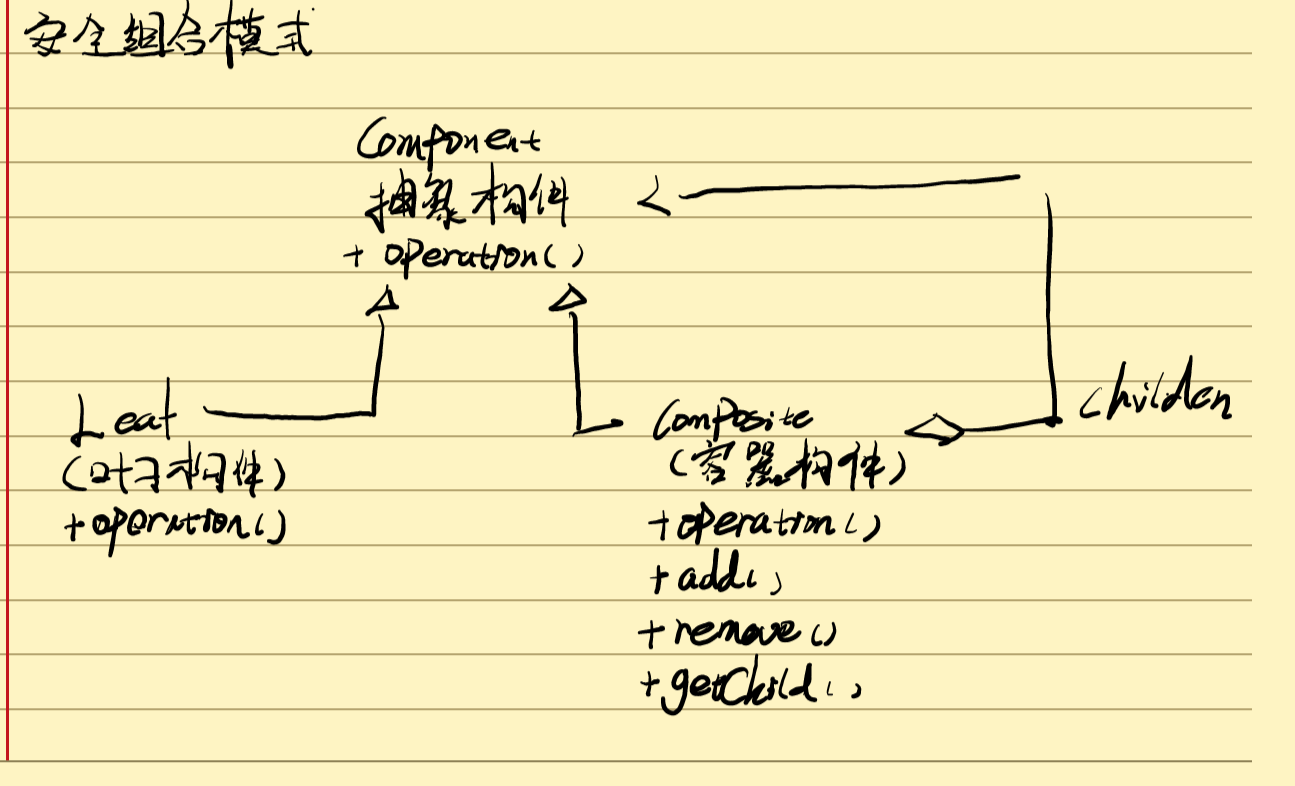 安全组合模式
Component
抽象构件
+ operation()
Leaf
(叶子构件)
+operation()
Composite
(容器构件)
+operation()
+add()
+remove()
+getChild()
childen